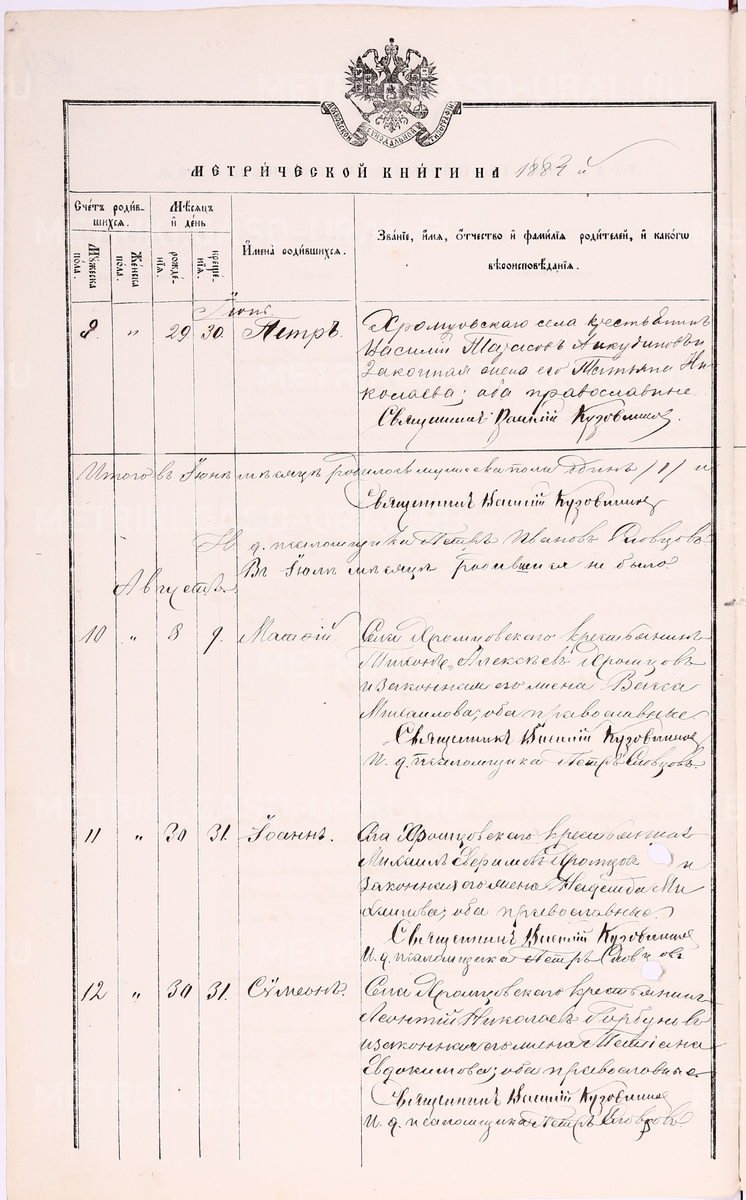 МЕТРИ́ЧЕСКОЙ КНИ́ГИ НА 1884 й
Счетъ роди́вшихся.
Мѣсяцъ и҆ день
И҆мена̀ роди́вшихся.
Зва́нїе, и҆́мя, ѻ҆́тчество и҆ фами́лїя роди́телей, и҆ како́гѡ вѣроисповѣ́данїя.
Мꙋ́жеска по́ла.
Же́нска по́ла.
рожде́нїя.
креще́нїя.
Іюнь.
9. " 29 30. Петръ.
Хромцовскаго села крестьянинъ
Василій Тарасовъ и
законная жена его Татьяна Ни
колаева; оба православные.
Священникъ Василій Кузовников.
Итого въ Іюнѣ мѣсяцѣ родилось мужеска пола одинъ /1/ и
Священникъ Василій Кузовников
И. д. псаломщика Петръ Ивановъ Словцовъ
Въ Іюлѣ мѣсяцѣ родившихся не было.
Августъ.
10 " 8 9. Матѳій.
Села Хромцовскаго крестьянинъ
Тихонъ Алексѣевъ Хромцовъ
и законная его жена Васса
Михаилова; оба православные
Священникъ Василій Кузовников
И. д. псаломщика Петръ Словцовъ.
11 " 30 31. Іоаннъ.
Села Хромцовскаго крестьянинъ
Михаилъ Хромцовъ и
законная его жена Надежда
оба православные.
Священникъ Василій Кузовников
И. д. псаломщика Петръ Словцовъ
12 " 30 31. Сѵмеонъ.
Села Хромцовскаго крестьянинъ
Леонтій Николаевъ Горбуновъ
и законная его жена Татіана
Евдокимова; оба православные.
Священникъ Василій Кузовников
И. д. псаломщика Петръ Словцовъ